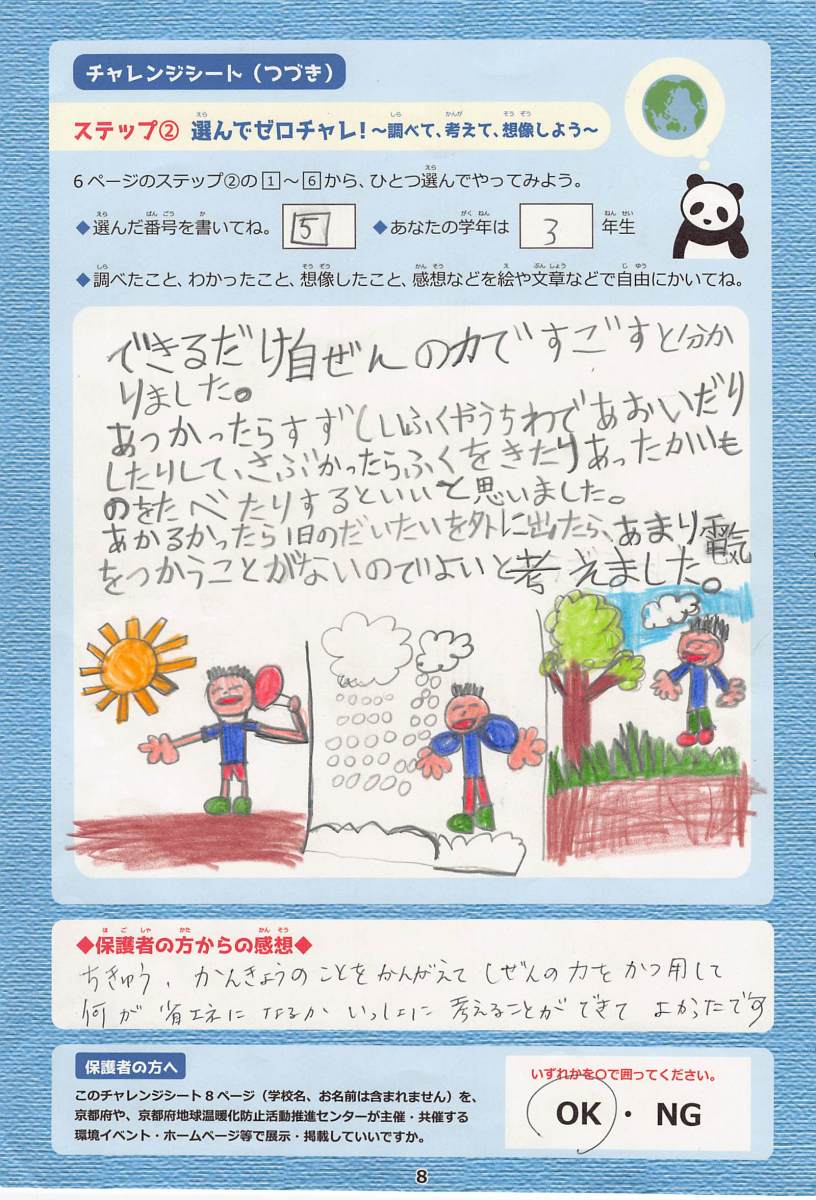 チャレンジシート（つづき）
ステップ② 選んでゼロチャレ！～調べて、考えて、想像しよう～
6ページのステップ②の1～6から、ひとつ選んでやってみよう。
◆選んだ番号を書いてね。 5 ◆あなたの学年は 3 年生
◆調べたこと、わかったこと、想像したこと、感想などを絵や文章などで自由にかいてね。
できるだけ自ぜんの力ですごすと分か
りました。
あつかったらすずしいふくやうちわであおいだり
したりして、さぶかったらふくをきたりあったかいも
のをたべたりするといいと思いました。
あかるかったら1日のだいたいを外に出たら、あまり電気
をつかうことがないのでよいと考えました。
◆保護者の方からの感想◆
ちきゅう、かんきょうのことをかんがえてしぜんの力をかつ用して
何が省エネになるかいっしょに考えることができてよかったです
保護者の方へ
いずれかを○で囲ってください。
このチャレンジシート8ページ（学校名、お名前は含まれません）を、
京都府や、京都府地球温暖化防止活動推進センターが主催・共催する
環境イベント・ホームページ等で展示・掲載していいですか。
OK・NG
8